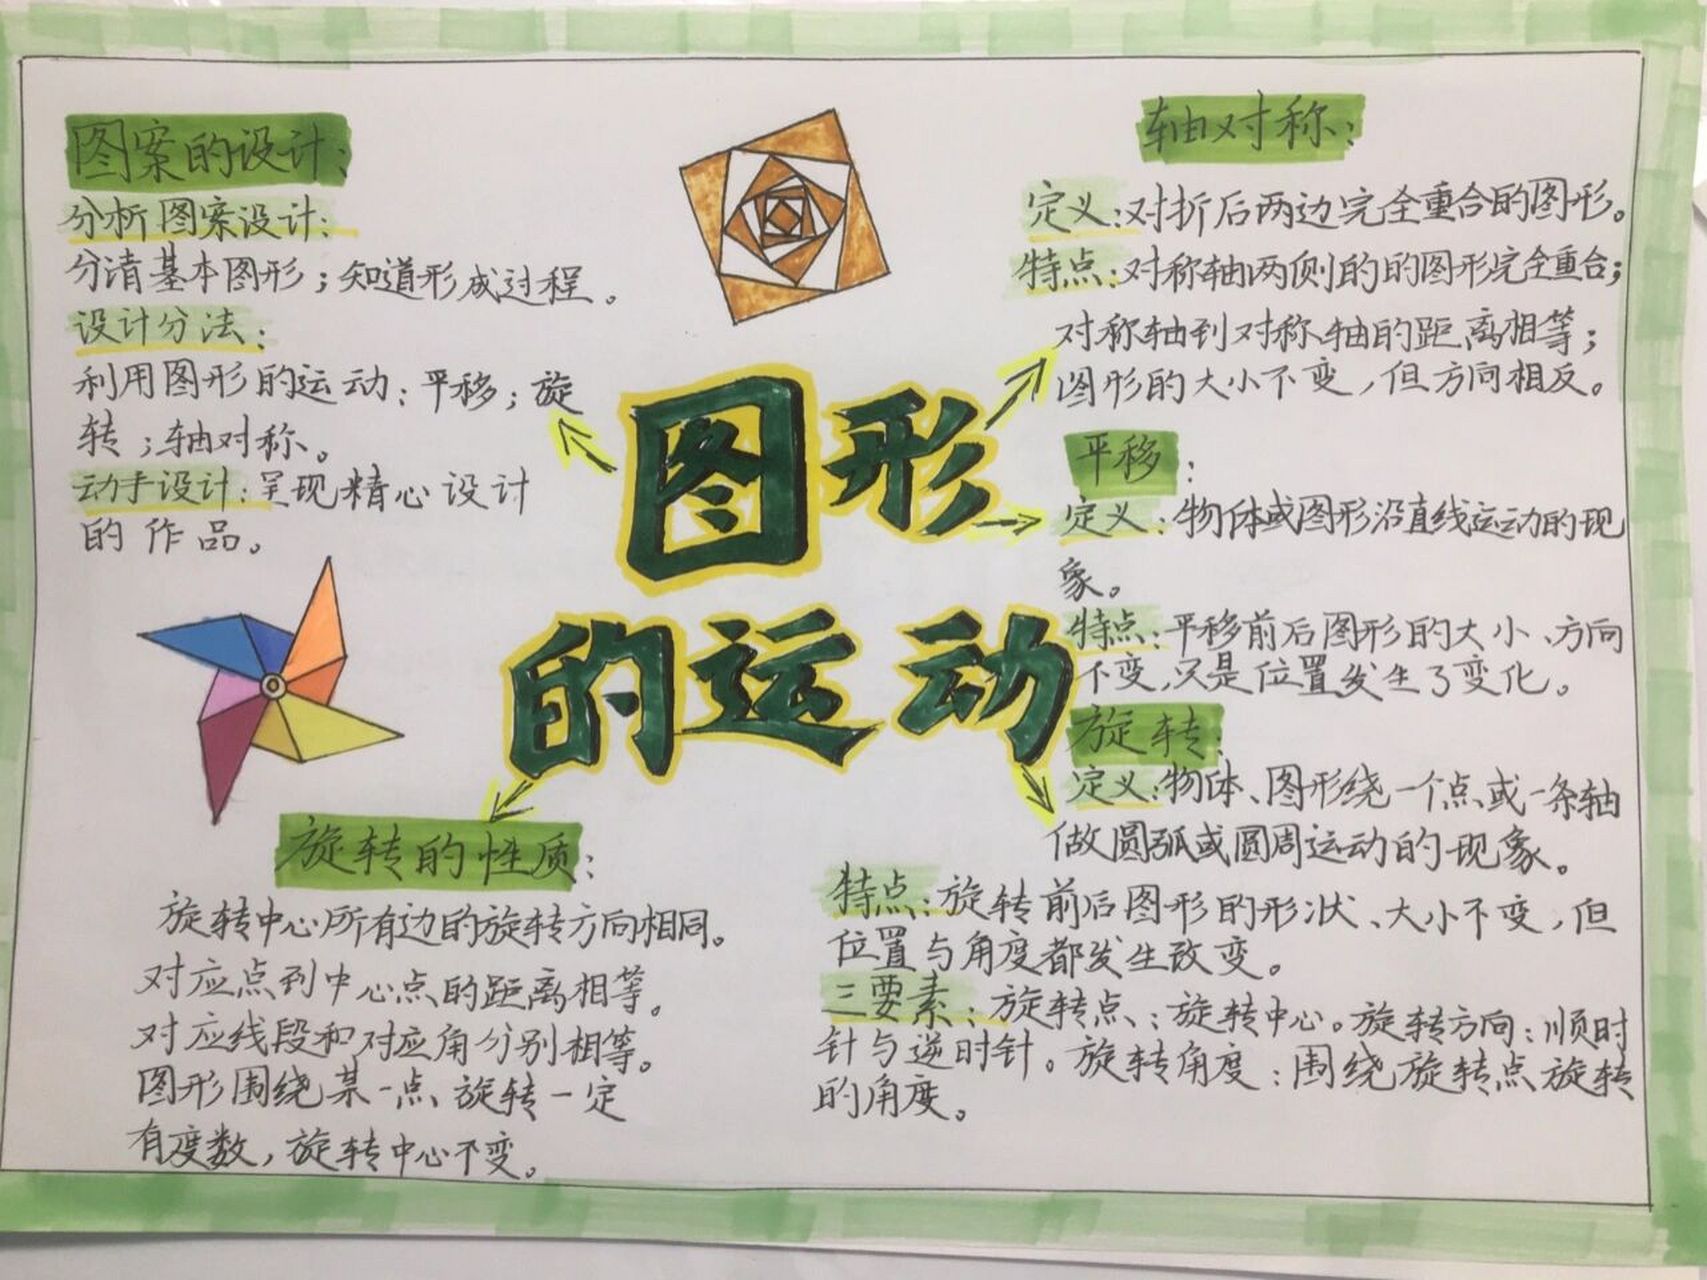 图形
的运动
图案的设计:
分析图案设计:
分清基本图形;知道形成过程。
设计分法:
利用图形的运动:平移;旋
转;轴对称。
动手设计:呈现精心设计
的作品。
轴对称:
定义:对折后两边完全重合的图形。
特点:对称轴两侧的的图形完全重合;
对称轴到对称轴的距离相等;
图形的大小不变,但方向相反。
平移:
定义:物体或图形沿直线运动的现
象。
特点:平移前后图形的大小、方向
不变,只是位置发生了变化。
旋转:
定义:物体、图形绕一个点或一条轴
做圆弧或圆周运动的现象。
特点:旋转前后图形的形状、大小不变,但
位置与角度都发生改变。
三要素:旋转点:旋转中心。旋转方向:顺时
针与逆时针。旋转角度:围绕旋转点旋转
的角度。
旋转的性质:
旋转中心所有边的旋转方向相同。
对应点到中心点的距离相等。
对应线段和对应角分别相等。
图形围绕某一点旋转一定
有度数,旋转中心不变。